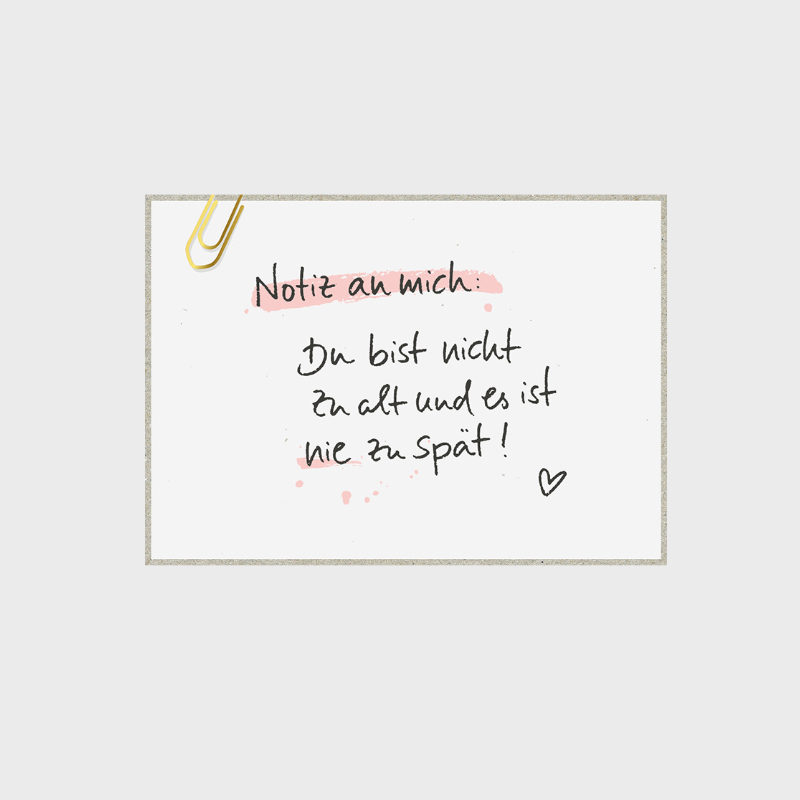 Notiz an mich:
Du bist nicht
zu alt und es ist
nie zu spät!